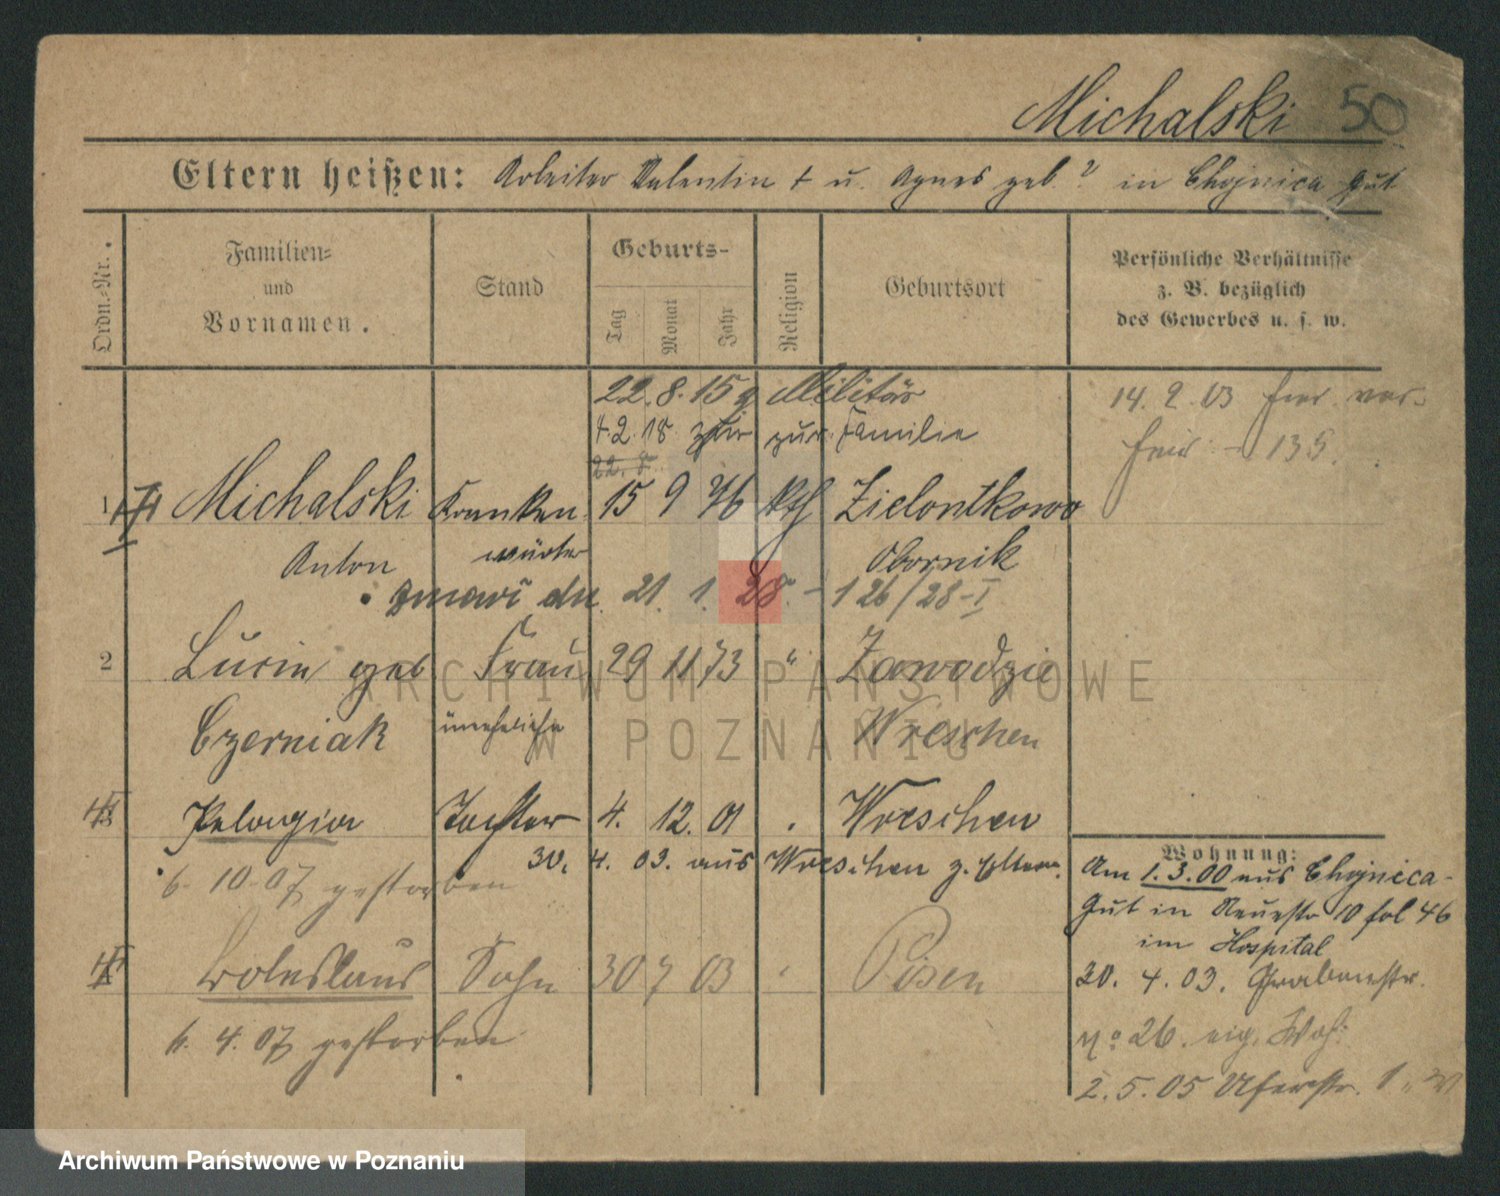 Michalski 50
Eltern heißen: Arbeiter Valentin † u. Agnes geb. ? in Chojnica Gut
Ordn.-Nr.
Familien-
und
Vornamen.
Stand
Geburts-
Tag
Monat
Jahr
Religion
Geburtsort
Persönliche Verhältnisse
z. B. bezüglich
des Gewerbes u. s. w.
22. 8. 15 Militär
4. 2. 18 zur Familie
22. 8.
14. 9. 03
135.
1 Michalski Kranken 15 9 76 kth Zielontkowo
Anton wärter Obornik
zmarł dn. 21. 1. 28. - 126/28-I
2 Lucia geb Frau 29 11 73 " Zawodzie
Czerniak Wreschen
uneheliche
3 Pelagia Tochter 4. 12. 01 Wreschen
30. 4. 03. aus Wreschen z. Eltern.
6. 10. 07 gestorben
4 Boleslaus Sohn 30 7 03 " Posen
6. 4. 07 gestorben
Wohnung:
Am 1. 3. 00 aus Chojnica-
Gut in Neuestr 10 fol 46
im Hospital
30. 4. 03. Grabenstr.
No 26. eig. Woh:
2. 5. 05 Uferstr. 1
ARCHIWUM PAŃSTWOWE
W POZNANIU
Archiwum Państwowe w Poznaniu